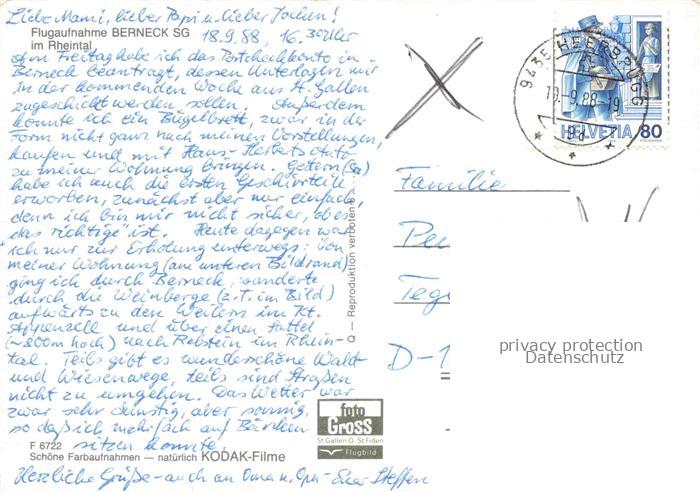 Liebe Mami, lieber Papi u. lieber Jochen!
Flugaufnahme BERNECK SG
im Rheintal
18.9.88, 16.30 Uhr
Am Freitag habe ich das Postcheckkonto in
Berneck beantragt, dessen Unterlagen mir
in der kommenden Woche aus St. Gallen
zugeschickt werden sollen. Außerdem
konnte ich ein Bügelbrett, zwar in der
Form nicht ganz nach meinen Vorstellungen,
kaufen und mit Hans-Herberts Auto
zu meiner Wohnung bringen. Gestern (Sa)
habe ich auch die ersten Geschirrteile
erworben, zunächst aber nur einfache,
denn ich bin mir nicht sicher, ob es
das richtige ist. Heute dagegen war
ich nur zur Erholung unterwegs: Von
meiner Wohnung (am unteren Bildrand)
ging ich durch Berneck, wanderte
durch die Weinberge (z.T. im Bild)
aufwärts zu den Weilern im Kt.
Appenzell und über einen Sattel
(~800m hoch) nach Rebstein im Rhein-
tal. Teils gibt es wunderschöne Wald-
und Wiesenwege, teils sind Straßen
nicht zu umgehen. Das Wetter war
zwar sehr dunstig, aber sonnig,
so daß ich mehrfach auf Bänken
sitzen konnte.
F 6722
Schöne Farbaufnahmen — natürlich KODAK-Filme
Herzliche Grüße - auch an Oma u. Opa - Euer Steffen
Reproduktion verboten
foto
GROSS
St. Gallen O. St. Fiden
Flugbild
9435 HEERBRUGG
19.-9.88-19
HELVETIA 80
Familie
Teg
D-1
privacy protection
Datenschutz